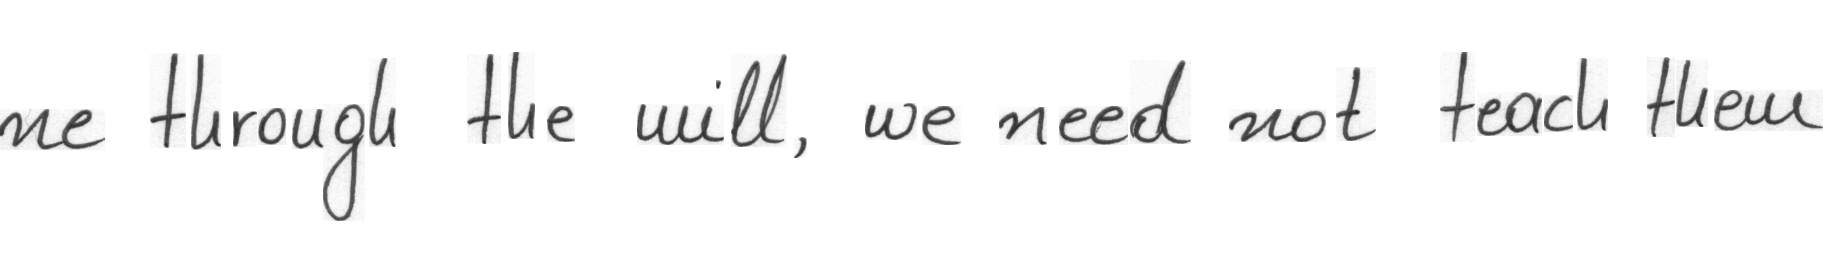 ne through the mill, we need not teach them